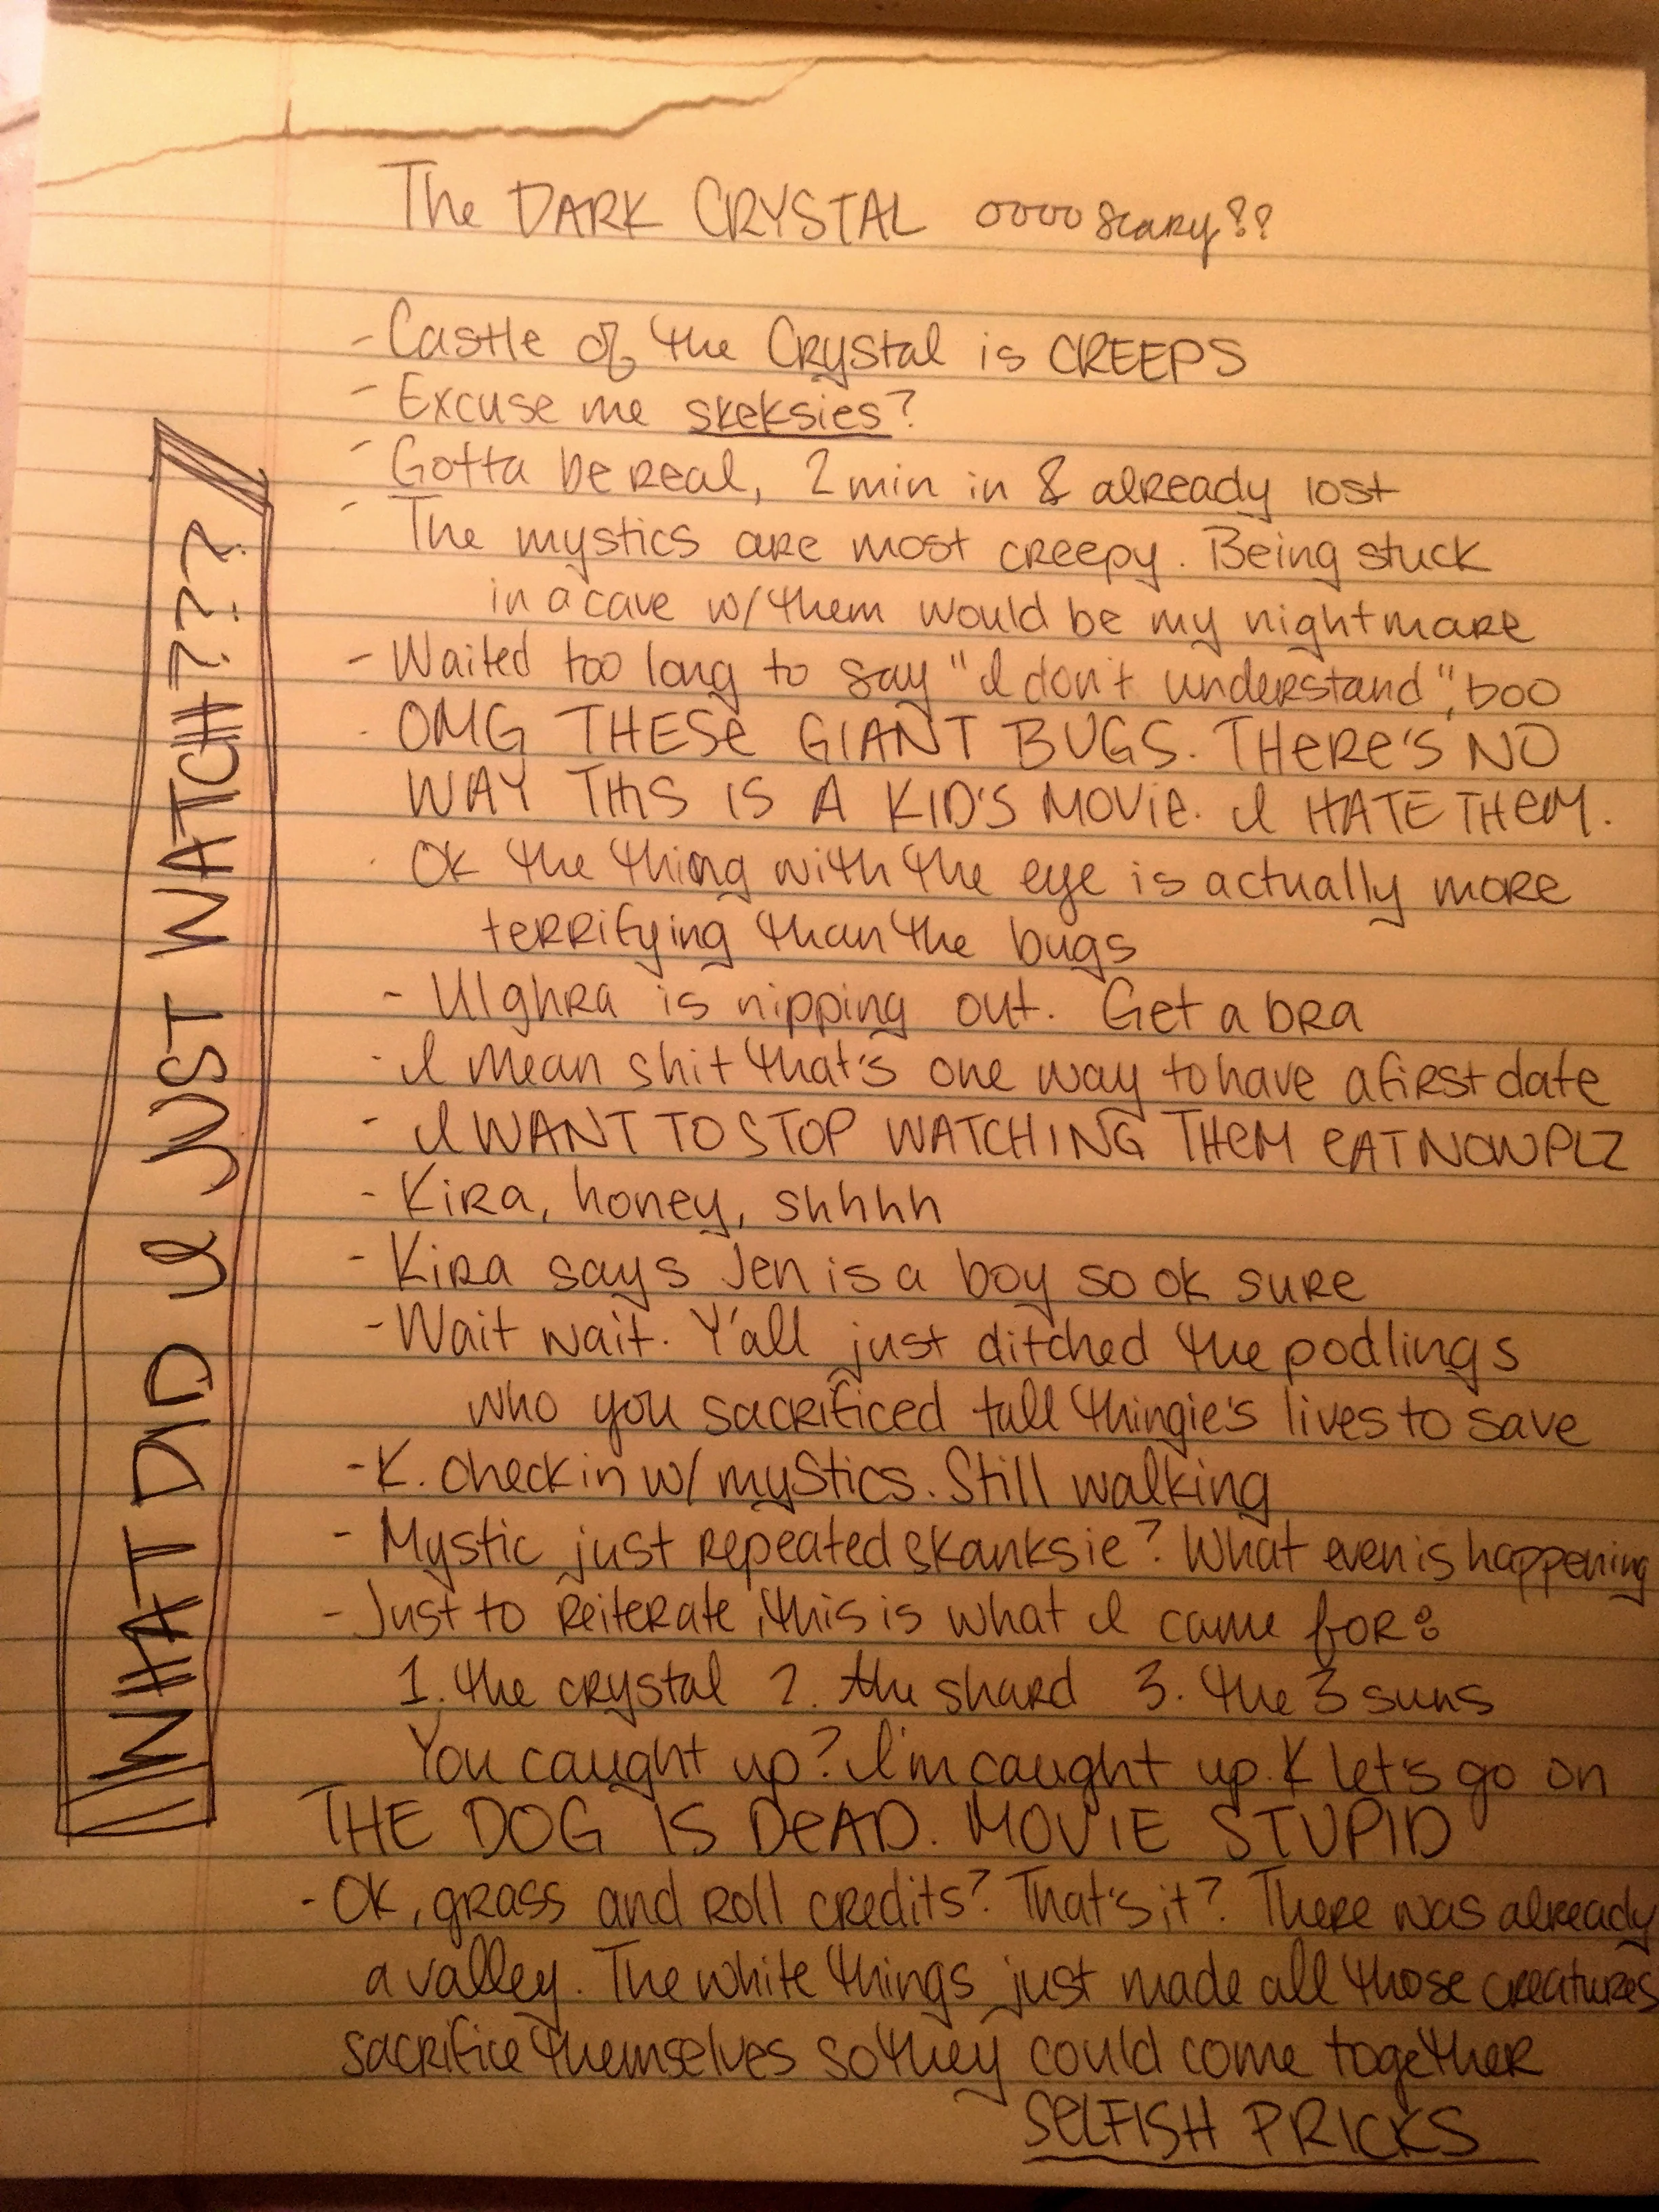 The DARK CRYSTAL oooo scary??
- Castle of the Crystal is CREEPS
- Excuse me skeksies?
- Gotta be real, 2 min in & already lost
- The mystics are most creepy. Being stuck
in a cave w/ them would be my nightmare
- Waited too long to say "I don't understand", boo
- OMG THESE GIANT BUGS. THERE'S NO
WAY THIS IS A KID'S MOVIE. I HATE THEM.
- Ok the thing with the eye is actually more
terrifying than the bugs
- Ulghra is nipping out. Get a bra
- I mean shit that's one way to have a first date
- I WANT TO STOP WATCHING THEM EAT NOW PLZ
- Kira, honey, shhhh
- Kira says Jen is a boy so ok sure
- Wait wait. Y'all just ditched the podlings
who you sacrificed tall thingie's lives to save
- K. Check in w/ mystics. Still walking
- Mystic just repeated skanksie? What even is happening
- Just to reiterate, this is what I came for:
1. the crystal 2. the shard 3. the 3 suns
You caught up? I'm caught up. K let's go on
THE DOG IS DEAD. MOVIE STUPID
- Ok, grass and roll credits? That's it? There was already
a valley. The white things just made all those creatures
sacrifice themselves so they could come together
SELFISH PRICKS
WHAT DID I JUST WATCH???